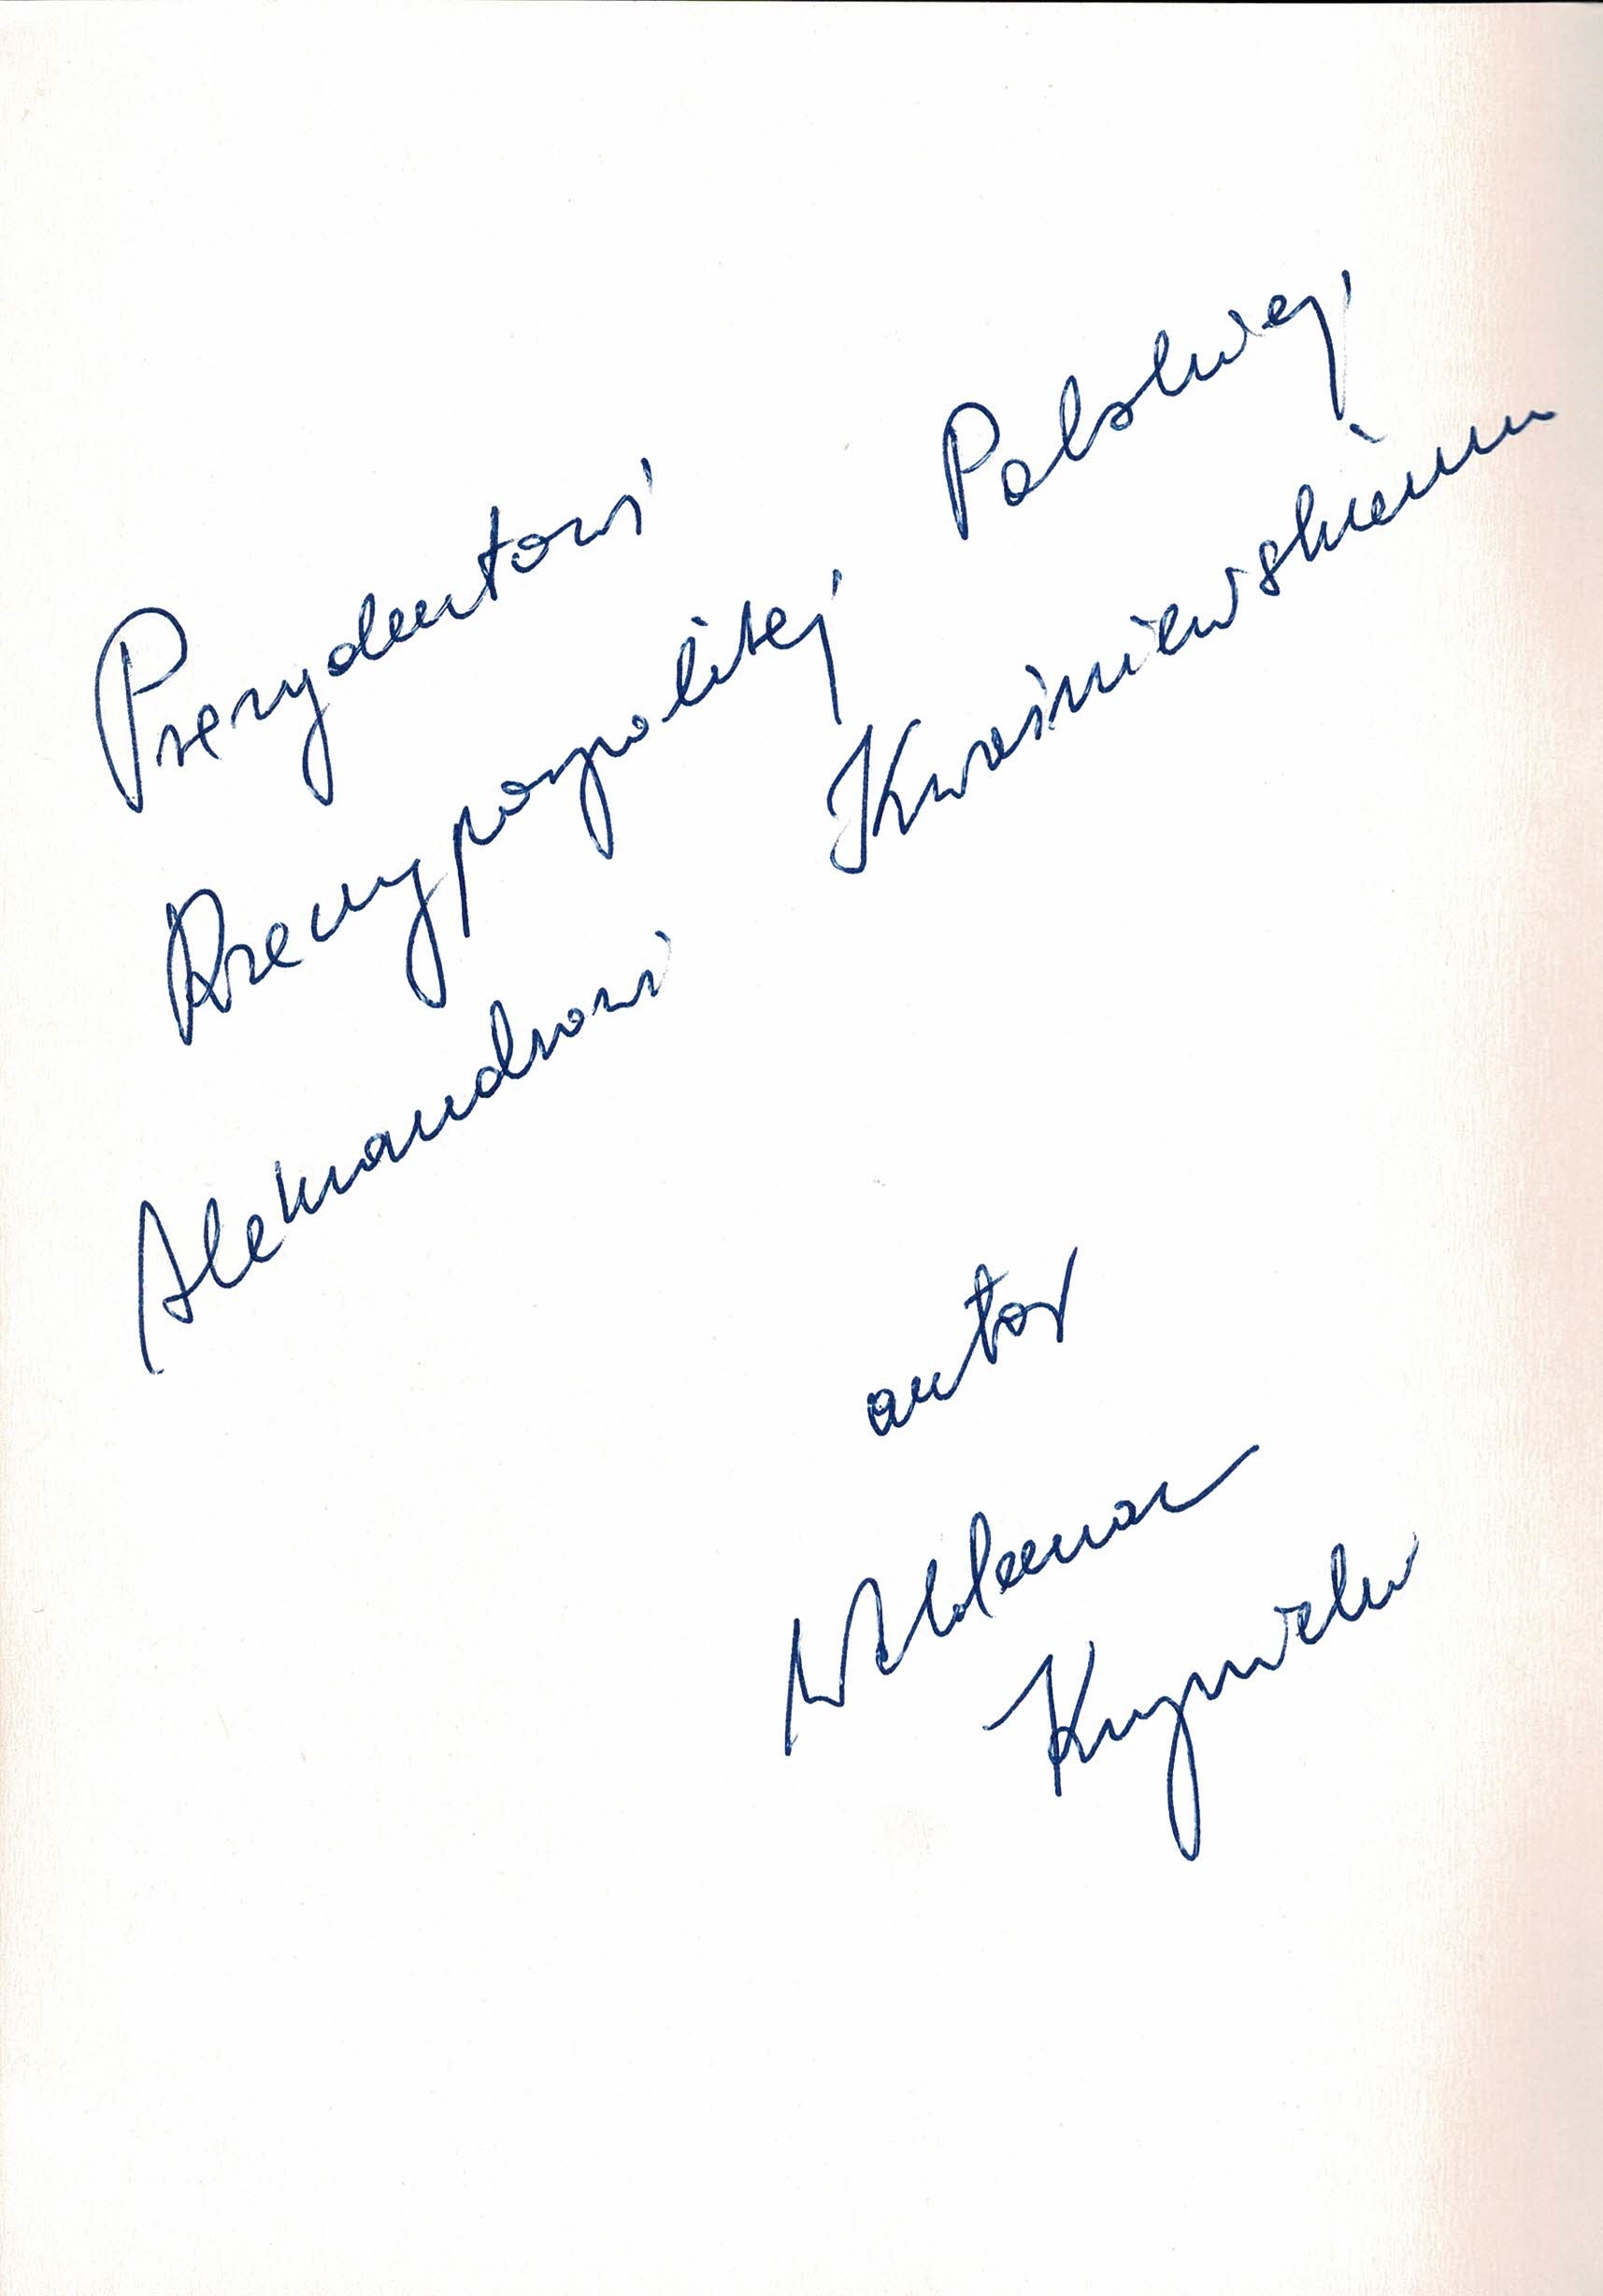 Prezydentowi
Rzeczypospolitej Polskiej
Aleksandrowi Kwaśniewskiemu
autor
Waldemar